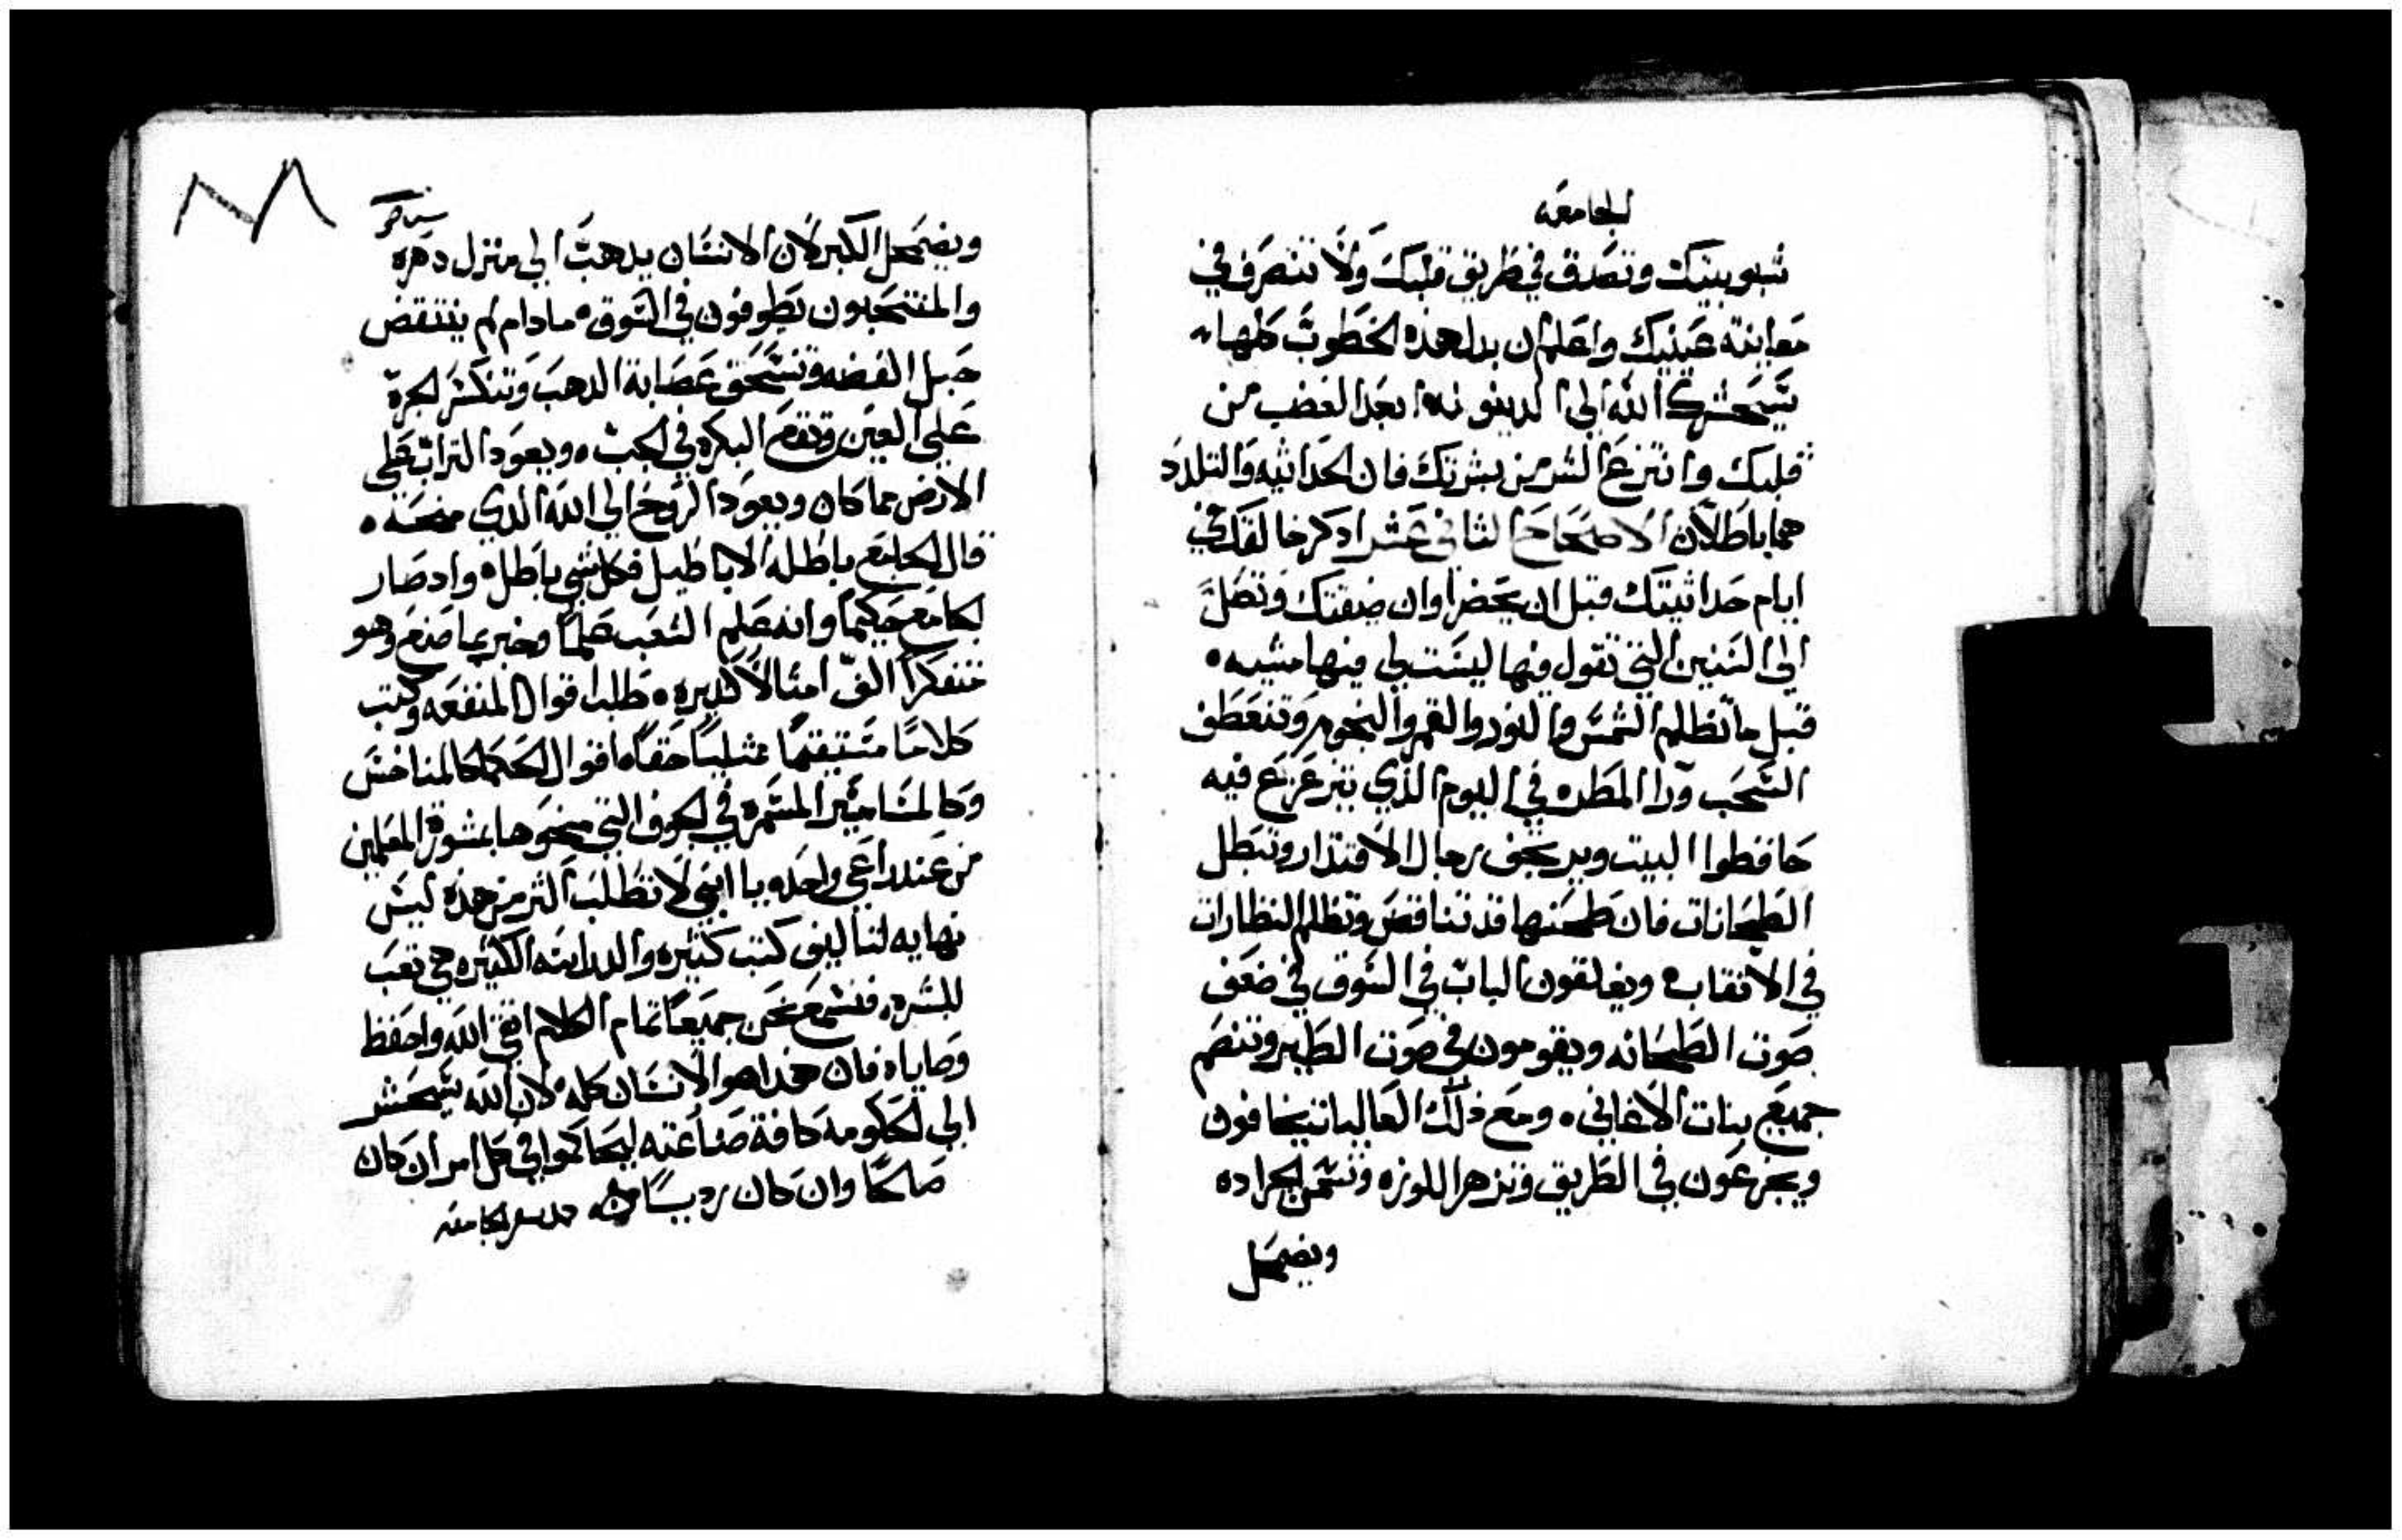 الجامعه
شبوبيتك وتصدق في طريق قلبك ولا تتصرف في
معاينة عينيك واعلم ان بدل هذه الخطوب كلها
سيحشرك الله الي الدينونه ابعد الغضب من
قلبك وانتزع الشر من بشرتك فان الحداثيه والتلدد
هما باطلان الاصحاح الثاني عشر ادكر خالقك في
ايام حداثيتك قبل ان يحضر اوان ضيقتك وتصل
الي السنين التي تقول فيها ليست لي فيها مشيه
قبل ما تظلم الشمس والنور والقمر والنجوم وتنعطف
السحب ورا المطر في اليوم الذي يتزعزع فيه
حافظوا البيت ويرتجف رجال الاقتدار وتبطل
الطحانات فان طحنها قد تناقص وتظلم النظارات
في الانقاب ويغلقون الباب في السوق في ضعف
صوت الطحانه ويقومون في صوت الطير وتنصم
جميع بنات الاغاني ومع ذلك العاليات يخافون
ويجزعون في الطريق وتزهر اللوزه وتسمن الجراده
ويضمحل
ويضمحل الكبر لان الانسان يدهب الي منزل دهره
والمنتحبون يطوفون في السوق ما دام لم ينتقض
حبل الفضه وتنسحق عصابة الدهب وتنكسر الجرة
علي العين وتقع البكره في الجب ويعود التراب علي
الارض كما كان ويعود الروح الي الله الذي منحه
قال الجامع باطلة الاباطيل فكل شي باطل واد صار
الجامع حكيما وانه علم الشعب علما وخبر بما صنع وهو
متفكرا الف امثالا كثيره طلب اقوال المنفعه وكتب
كلاما مستقيما مثليا حقا اقوال الحكما كالمناخس
وكالمسامير المسمره في الجوف التي منحوها بمشورة المعلمين
من عند راعي واحد يا ابني لا تطلب اكثر من هذه ليس
نهايه لتاليف كتب كثيره والدراسه الكثيره هي تعب
للبشره فنسمع نحن جميعا تمام الكلام اتق الله واحفظ
وصاياه فان هذا هو الانسان كله لان الله سيحشر
الي الحكومه كافة صناعته ليحاكموا في كل امر ان كان
صالحا وان كان رديا